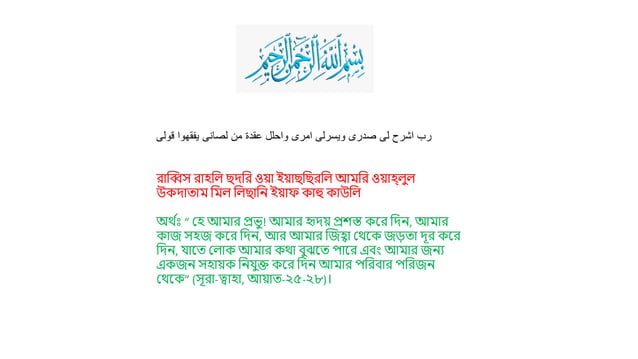 بسم الله الرحمن الرحيم
رب اشرح لى صدرى ويسرلى امرى واحلل عقدة من لصانى يفقهوا قولى
রাব্বিস রাহলি ছদরি ওয়া ইয়াছছিরলি আমরি ওয়াহ্লুল
উকদাতাম মিল লিছানি ইয়াফ কাহু কাউলি
অর্থঃ “ হে আমার প্রভু! আমার হৃদয় প্রশস্ত করে দিন, আমার
কাজ সহজ করে দিন, আর আমার জিহ্বা থেকে জড়তা দূর করে
দিন, যাতে লোক আমার কথা বুঝতে পারে এবং আমার জন্য
একজন সহায়ক নিযুক্ত করে দিন আমার পরিবার পরিজন
থেকে” (সূরা-ত্বাহা, আয়াত-২৫-২৮)।